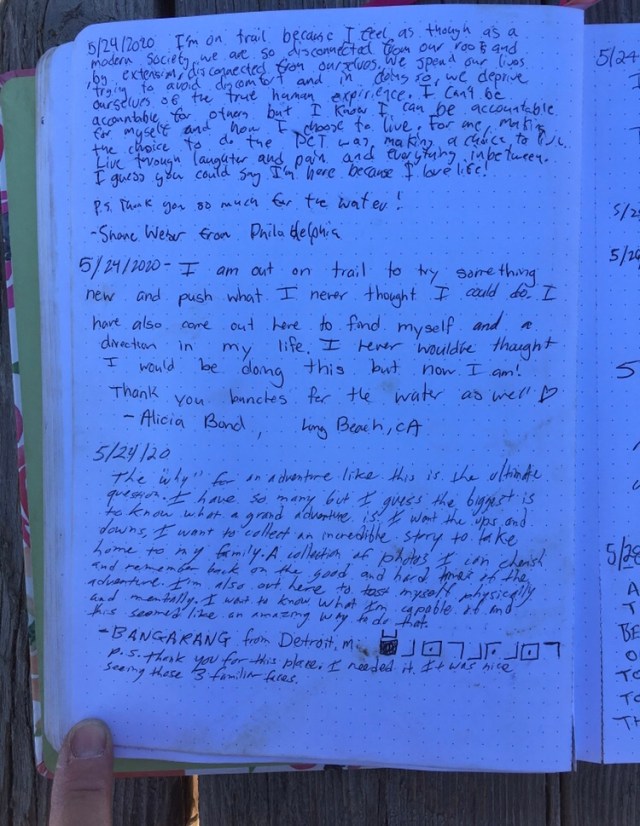 5/24/2020 I'm on trail because I feel as though as a
modern society we are so disconnected from our roots and
by extension, disconnected from ourselves. We spend our lives
trying to avoid discomfort and in doing so, we deprive
ourselves of the true human experience. I can't be
accountable for others but I know I can be accountable
for myself and how I choose to live. For me, making
the choice to do the PCT was making a choice to live.
Live through laughter and pain and everything inbetween.
I guess you could say I'm here because I love life!
P.S. Thank you so much for the water!
-Shane Weber from Philadelphia
5/24/2020 - I am out on trail to try something
new and push what I never thought I could do. I
have also come out here to find myself and a
direction in my life. I never wouldve thought
I would be doing this but now I am!
Thank you bunches for the water as well
- Alicia Bond, Long Beach, CA
5/24/20
The "why" for an adventure like this is the ultimate
question. I have so many but I guess the biggest is
to know what a grand adventure is. I want the ups and
downs, I want to collect an incredible story to take
home to my family. A collection of photos I can cherish
and remember back on the good and hard times of the
adventure. I'm also out here to test myself physically
and mentally. I want to know what I'm capable of and
this seemed like an amazing way to do that.
-BANGARANG from Detroit, Mi
P.S. Thank you for this place. I needed it. It was nice
seeing those 3 familiar faces.
5/24
5/2
5/2
S
5/28
A
T
BE
O
TO
TO
TH